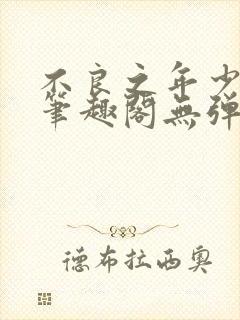 不良之年少
笔趣閣無弹
德布拉西奥